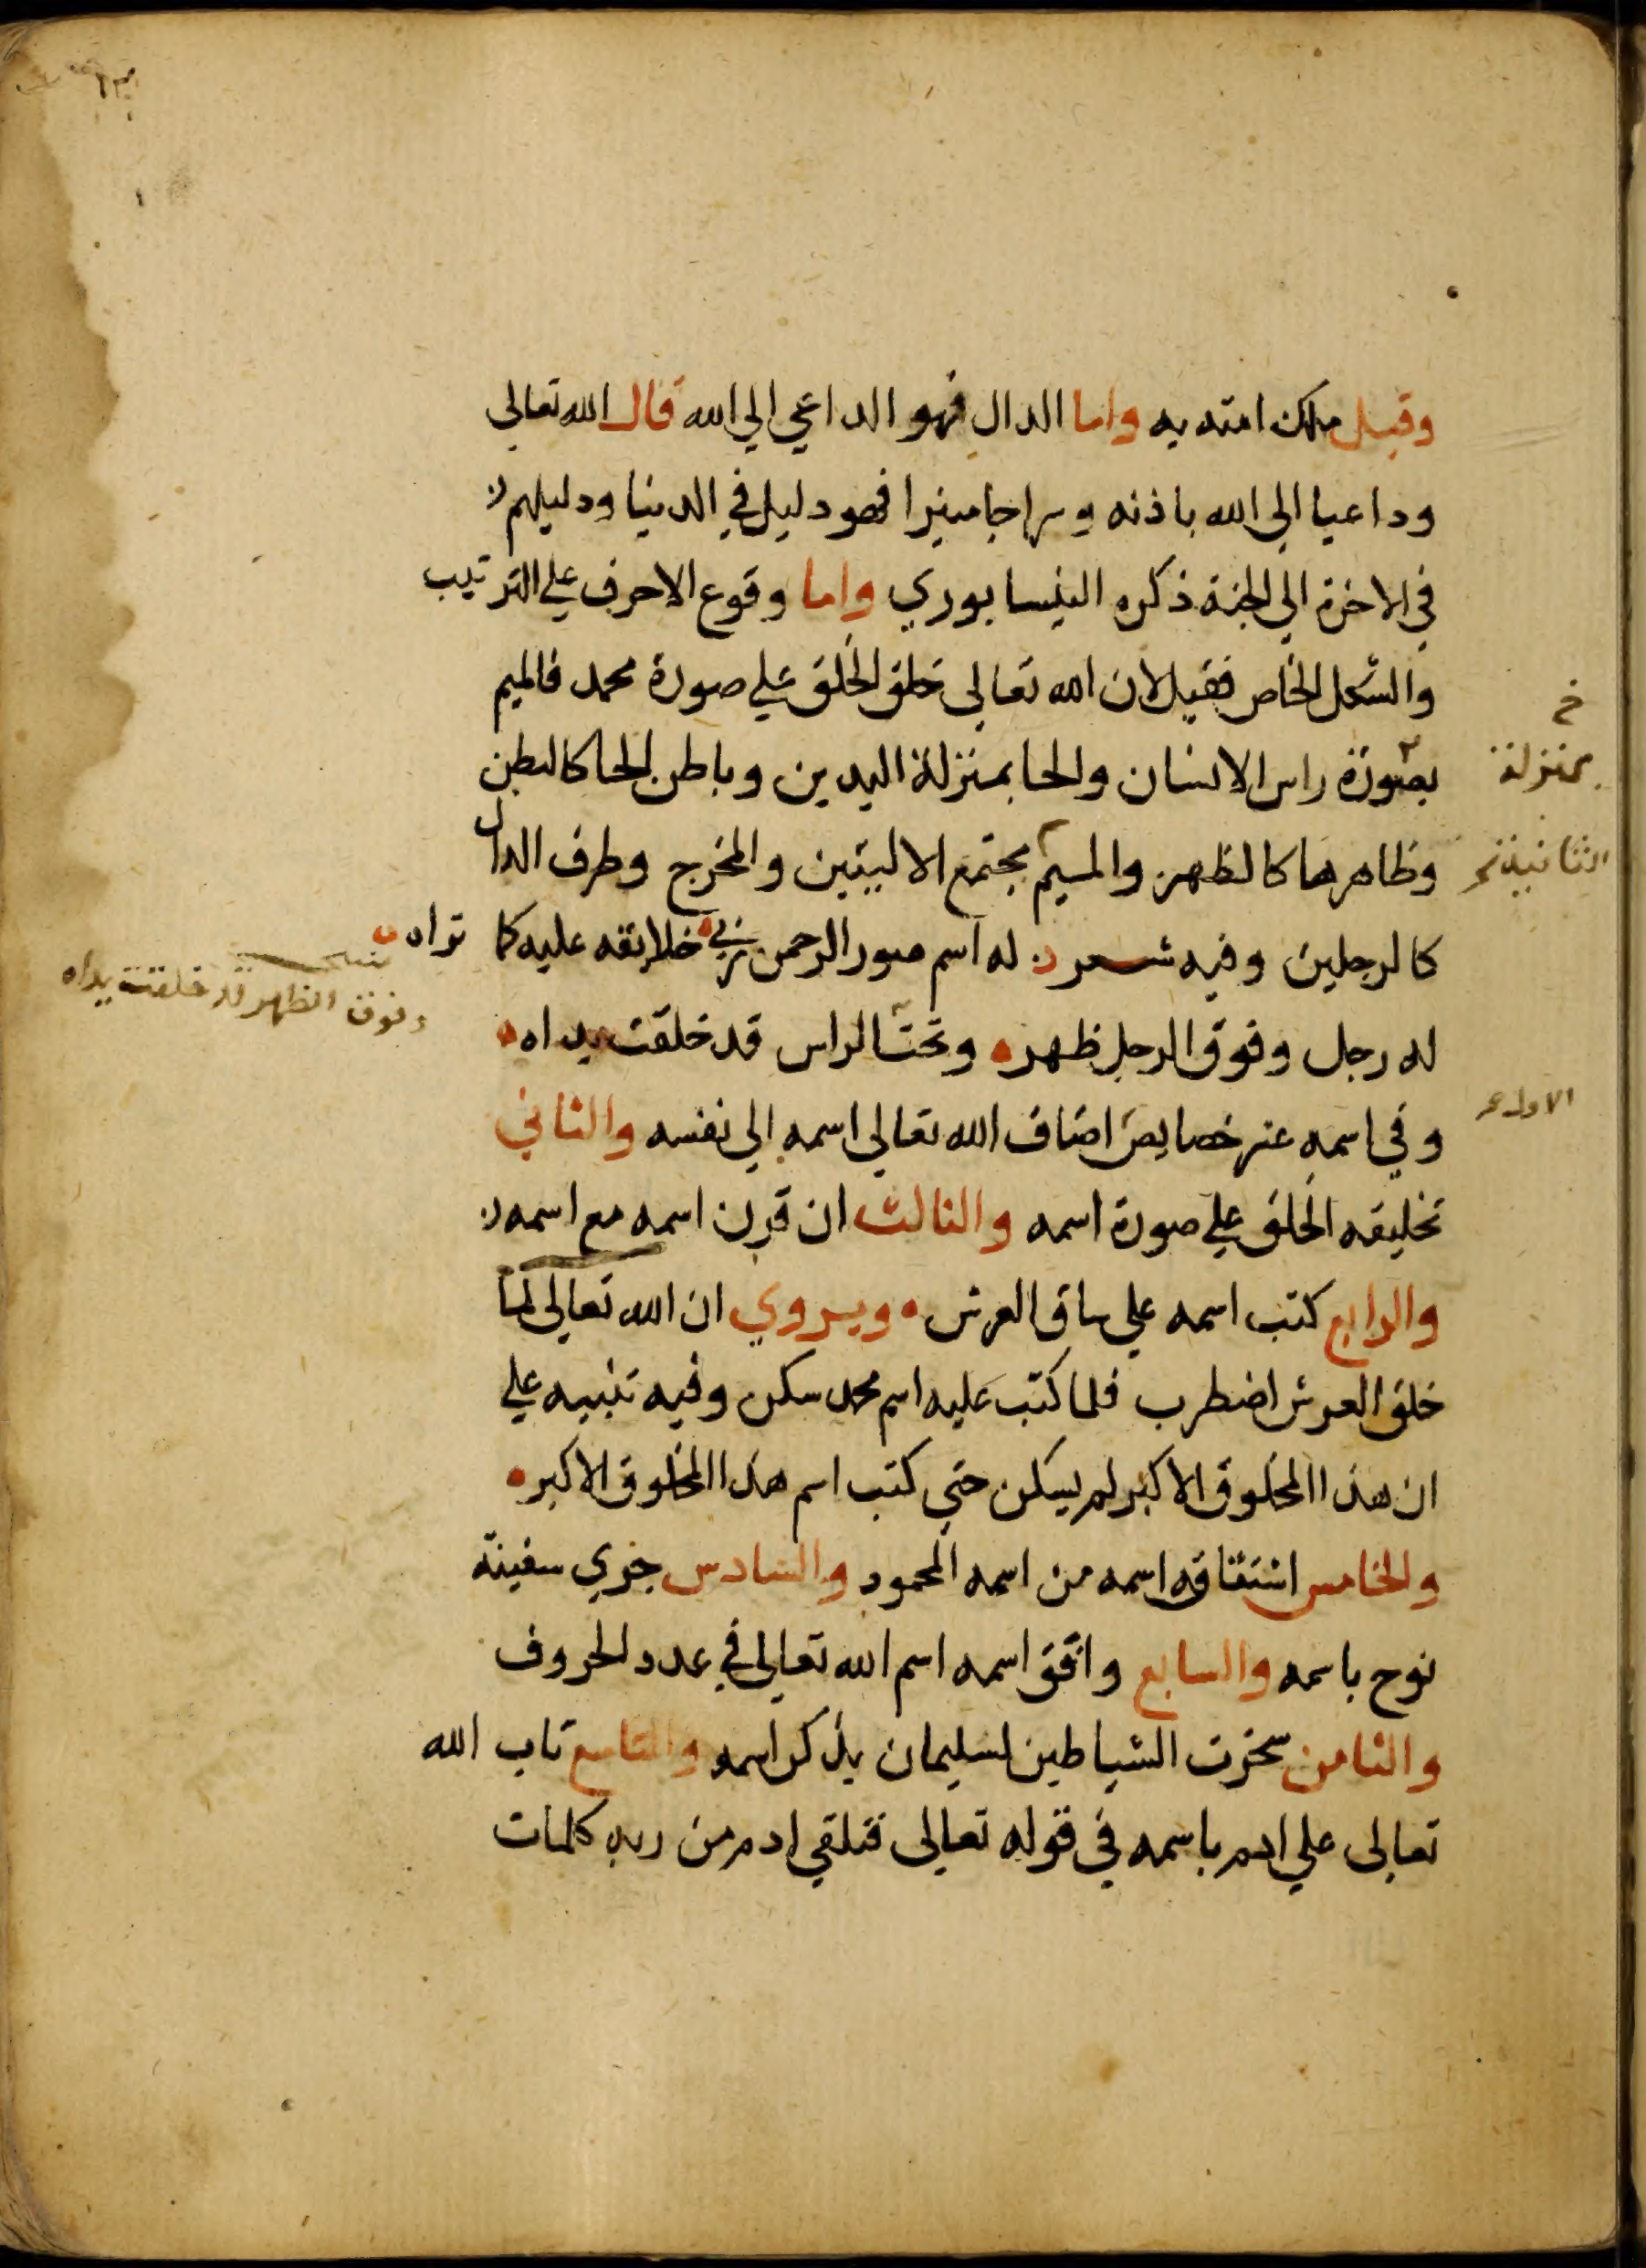 وقيل ملك امته به واما الدال فهو الداعي الي الله قال الله تعالى
وداعيا الى الله باذنه وسراجا منيرا فهو دليل في الدنيا ودليلهم
في الاخرة الي الجنة ذكره النيسابوري واما وقوع الاحرف علي الترتيب
والشكل الخاص فقيل لان الله تعالى خلق الخلق علي صورة محمد فالميم
بصورة راس الانسان والحا بمنزلة اليدين وباطن الحا كالبطن
خ
بمنزلة
وظاهرها كالظهر والميم مجتمع الاليتين والمخرج وطرف الدال
الثانية
كالرجلين وفيه شعر له اسم صور الرحمن ربي خلايقه عليه كما تراه
له رجل وفوق الرجل ظهر وتحت الراس قد خلقت يداه
وفوق الظهر قد خلقت يداه
وفي اسمه عشر خصايص اضاف الله تعالى اسمه الي نفسه والثاني
الاول
تخليقه الخلق علي صورة اسمه والثالث ان قرن اسمه مع اسمه
والرابع كتب اسمه علي ساق العرش ويروي ان الله تعالى لما
خلق العرش اضطرب فلما كتب عليه اسم محمد سكن وفيه تنبيه علي
ان هذا المخلوق الاكبر لم يسكن حتي كتب اسم هذا المخلوق الاكبر
والخامس اشتقاقه اسمه من اسمه المحمود والسادس جري سفينة
نوح باسمه والسابع وافق اسمه اسم الله تعالى في عدد الحروف
والثامن سخرت الشياطين لسليمان بذكر اسمه والتاسع تاب الله
تعالى علي ادم باسمه في قوله تعالى فتلقي ادم من ربه كلمات